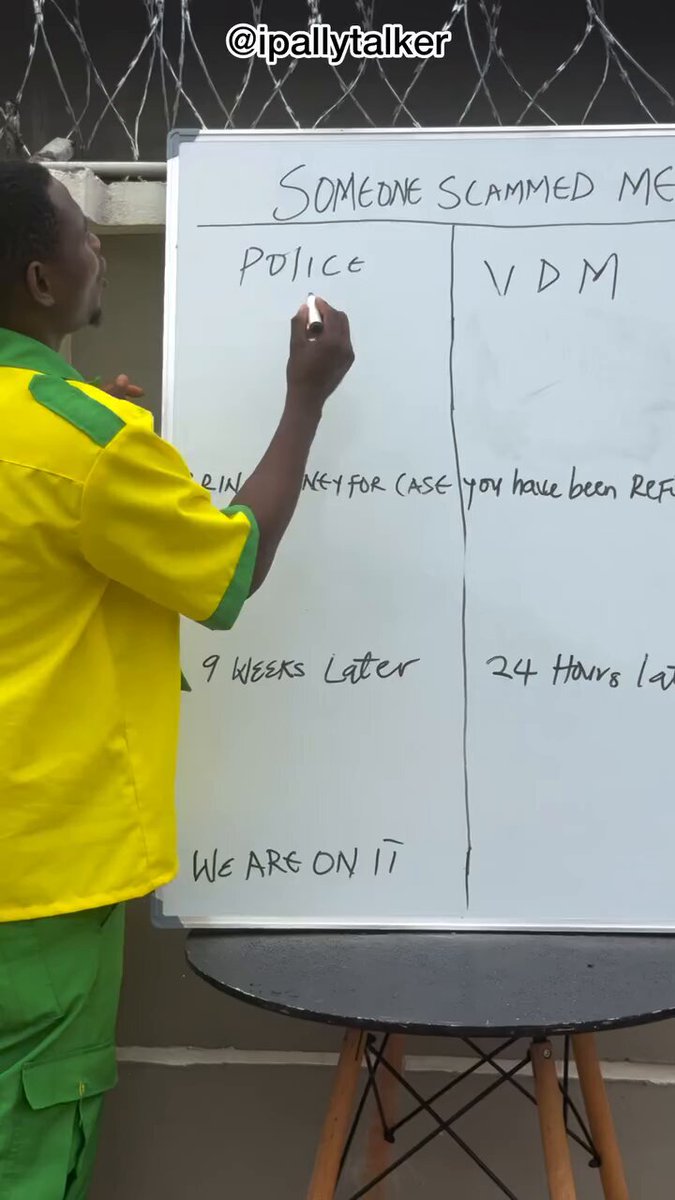 @ipallytalker
SOMEONE SCAMMED ME
POLICE
VDM
FOR CASE
you have been
9 WEEKS Later
24 Hours
WE ARE ON IT